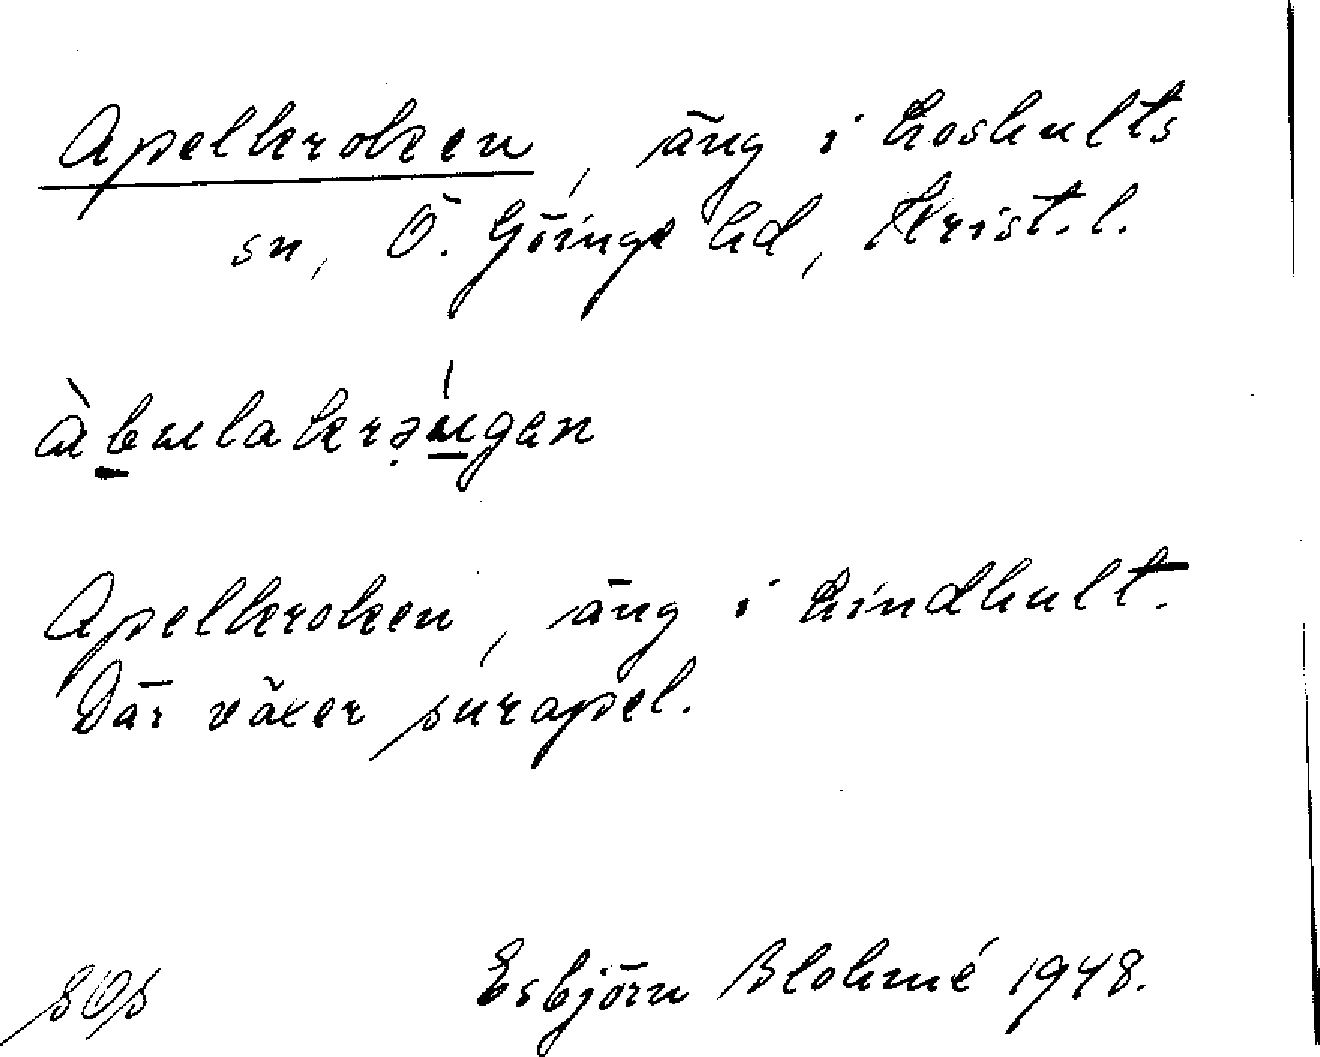 Apelkroken, äng i Loshults
sn, Ö. Göinge hd, Krist. l.
àbulakrǝ̣́ugen
Apelkroken, äng i Lindhult.
Där växer surapel.
Esbjörn Blohmé 1948.